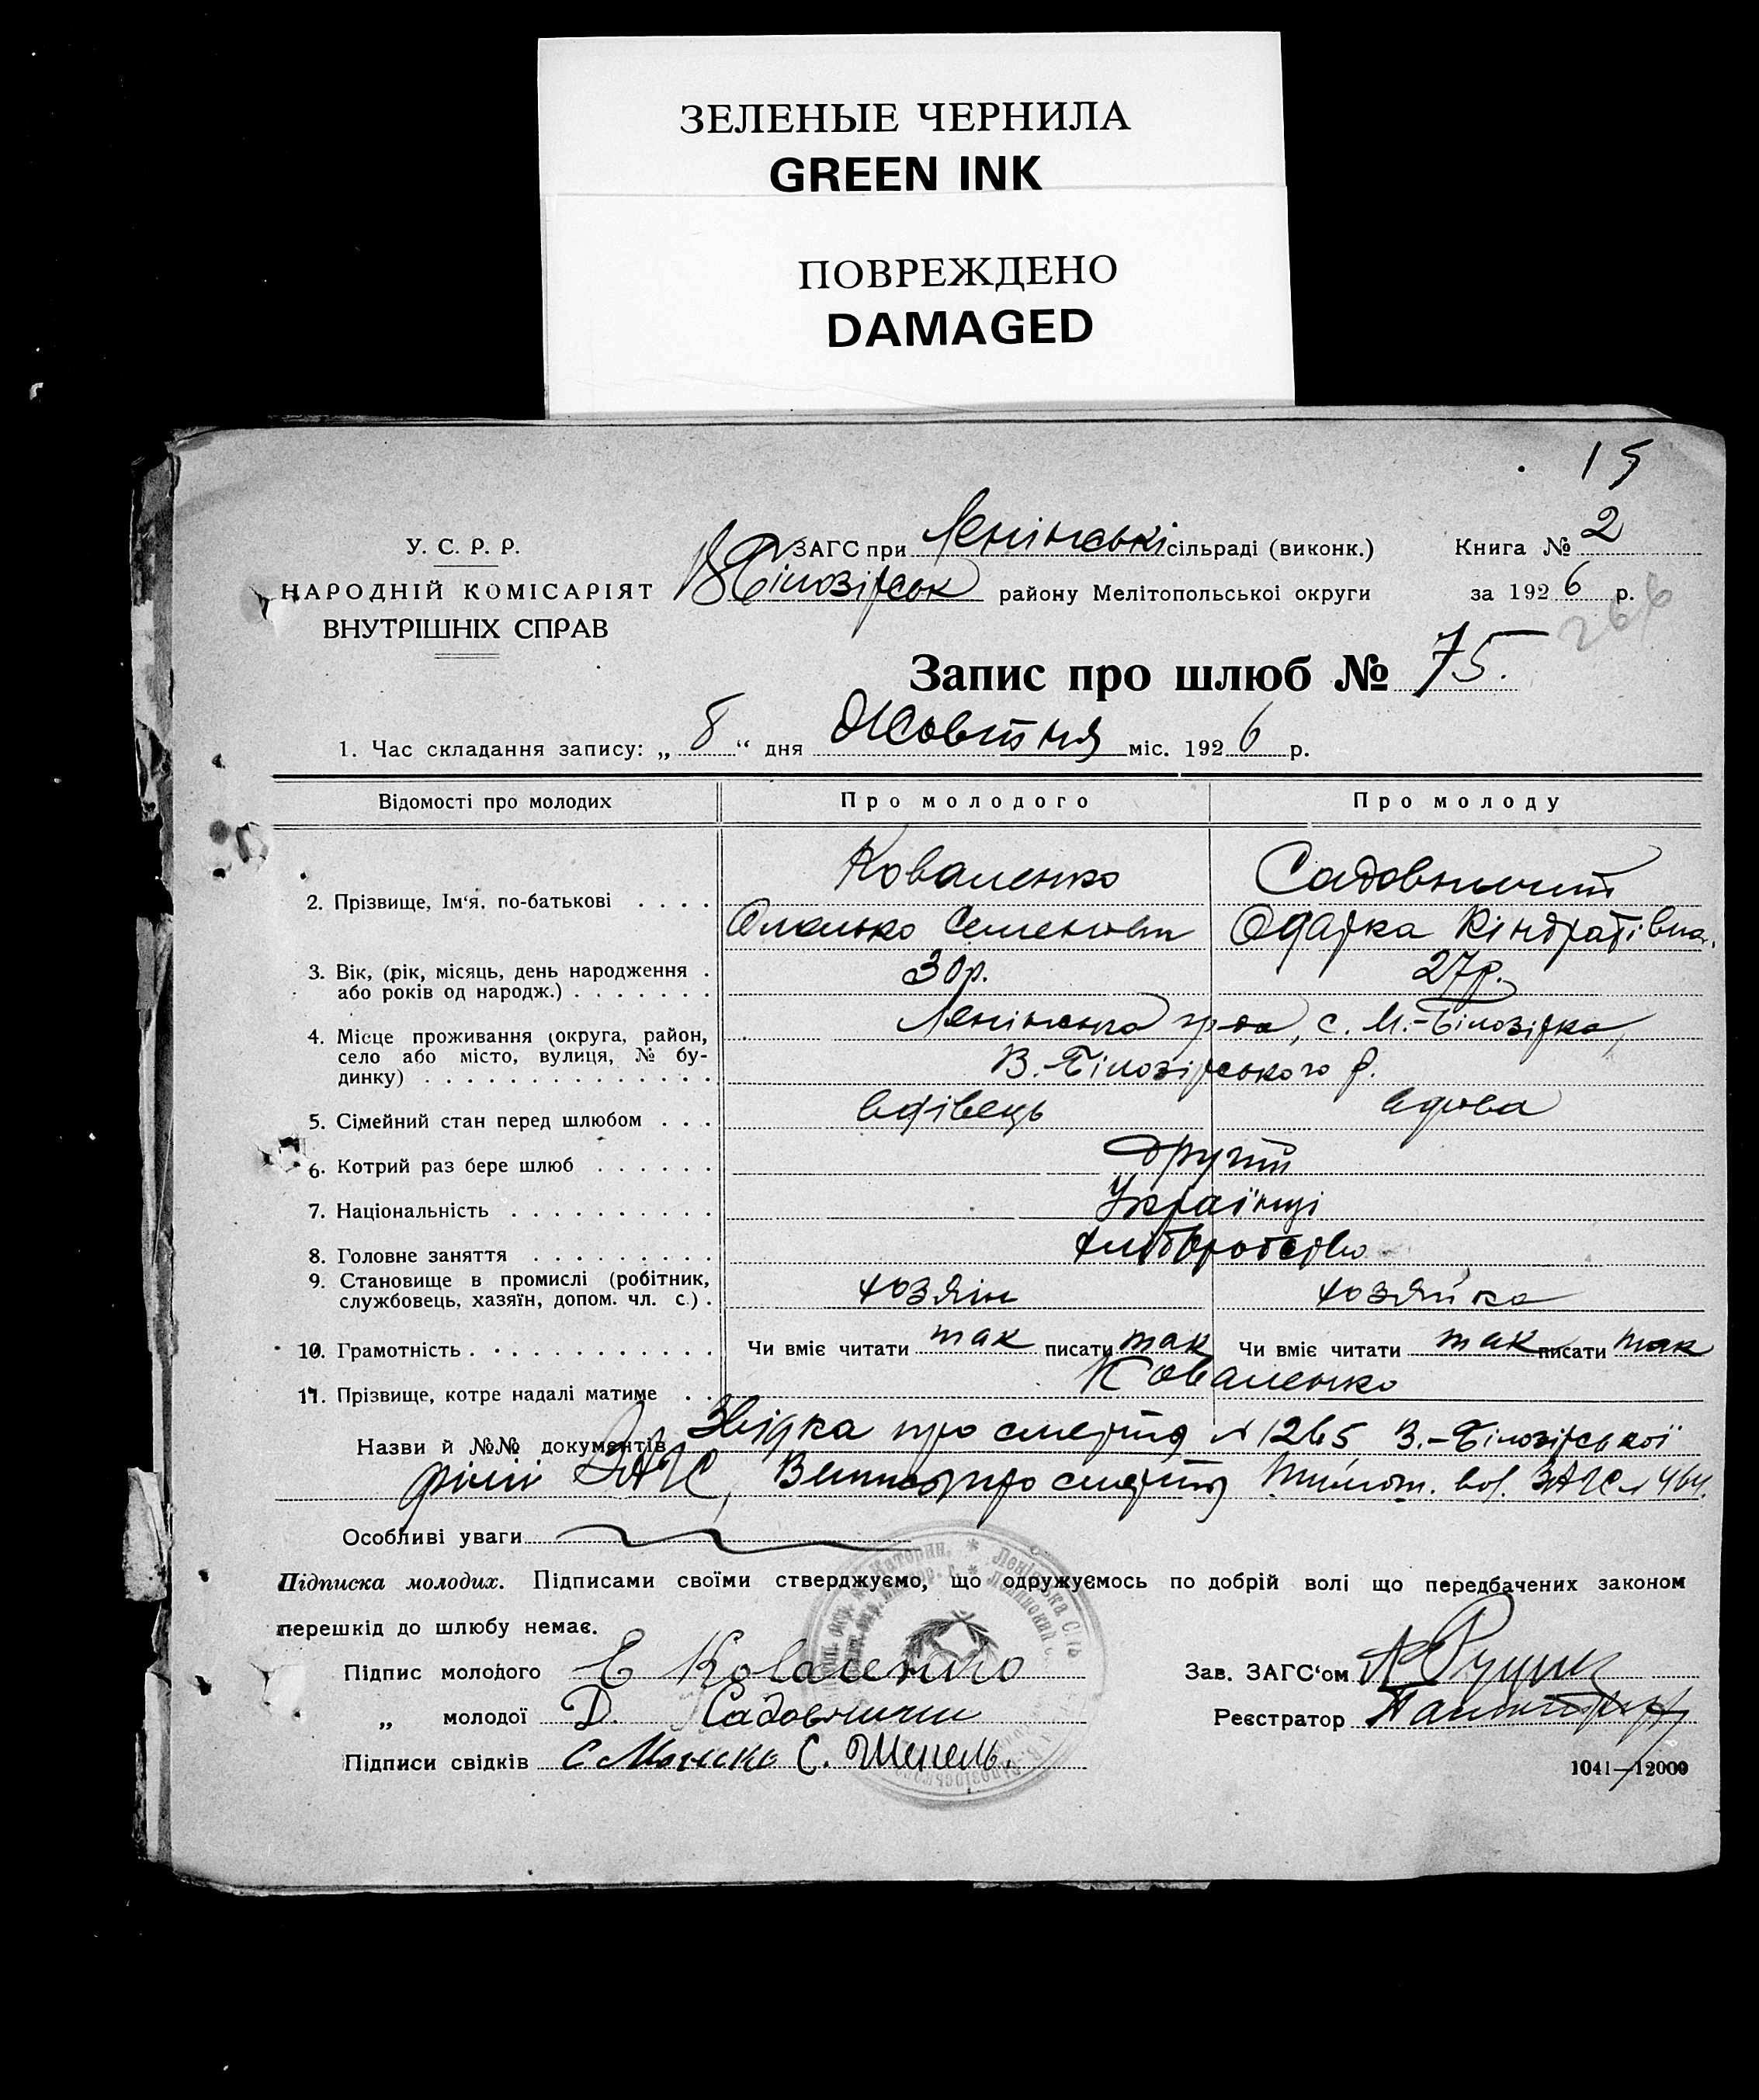 ЗЕЛЕНЫЕ ЧЕРНИЛА
GREEN INK
ПОВРЕЖДЕНО
DAMAGED
15
У. С. Р. Р.
НАРОДНІЙ КОМІСАРІЯТ
ВНУТРІШНІХ СПРАВ
ЗАГС при Ленінські сільраді (виконк.)
В Білозірськ району Мелітопольської округи
Книга № 2
за 1926 р.
266
Запис про шлюб № 75.
1. Час складання запису: „ 8 “ дня Жовтня міс. 1926 р.
Відомості про молодих Про молодого Про молоду
2. Прізвище, Ім‘я, по-батькові . . . . Коваленко Садовничий
Омелько Семенович Одарка Кіндратівна.
3. Вік, (рік, місяць, день народження . 30р. 27р.
або років од народж.) . . . . . . .
4. Місце проживання (округа, район, Ленінська с. М.-Білозірка,
село або місто, вулиця, № бу-
динку) . . . . . . . . . . . . . . В.-Білозірського р.
5. Сімейний стан перед шлюбом . . . вдівець вдова
6. Котрий раз бере шлюб . . . . . . другий
7. Національність . . . . . . . . . . Українці
8. Головне заняття . . . . . . . . . хліборобство
9. Становище в промислі (робітник,
службовець, хазяїн, допом. чл. с.) . хозяїн хозяйка
10. Грамотність . . . . . . . . . . . . Чи вміє читати так писати так Чи вміє читати так писати так
11. Прізвище, котре надалі матиме . . Коваленко
Назви й №№ документів Звідка про смерть № 1265 В.-Білозірської
філії ЗАГС, про смерть ЗАГС № 464.
Особливі уваги
Підписка молодих. Підписами своїми стверджуємо, що одружуємось по добрій волі що передбачених законом
перешкід до шлюбу немає.
Підпис молодого Е Коваленко
„ молодої Д. Садовничий
Підписи свідків С. Шепель.
Зав. ЗАГС‘ом
Реєстратор
1041—12000